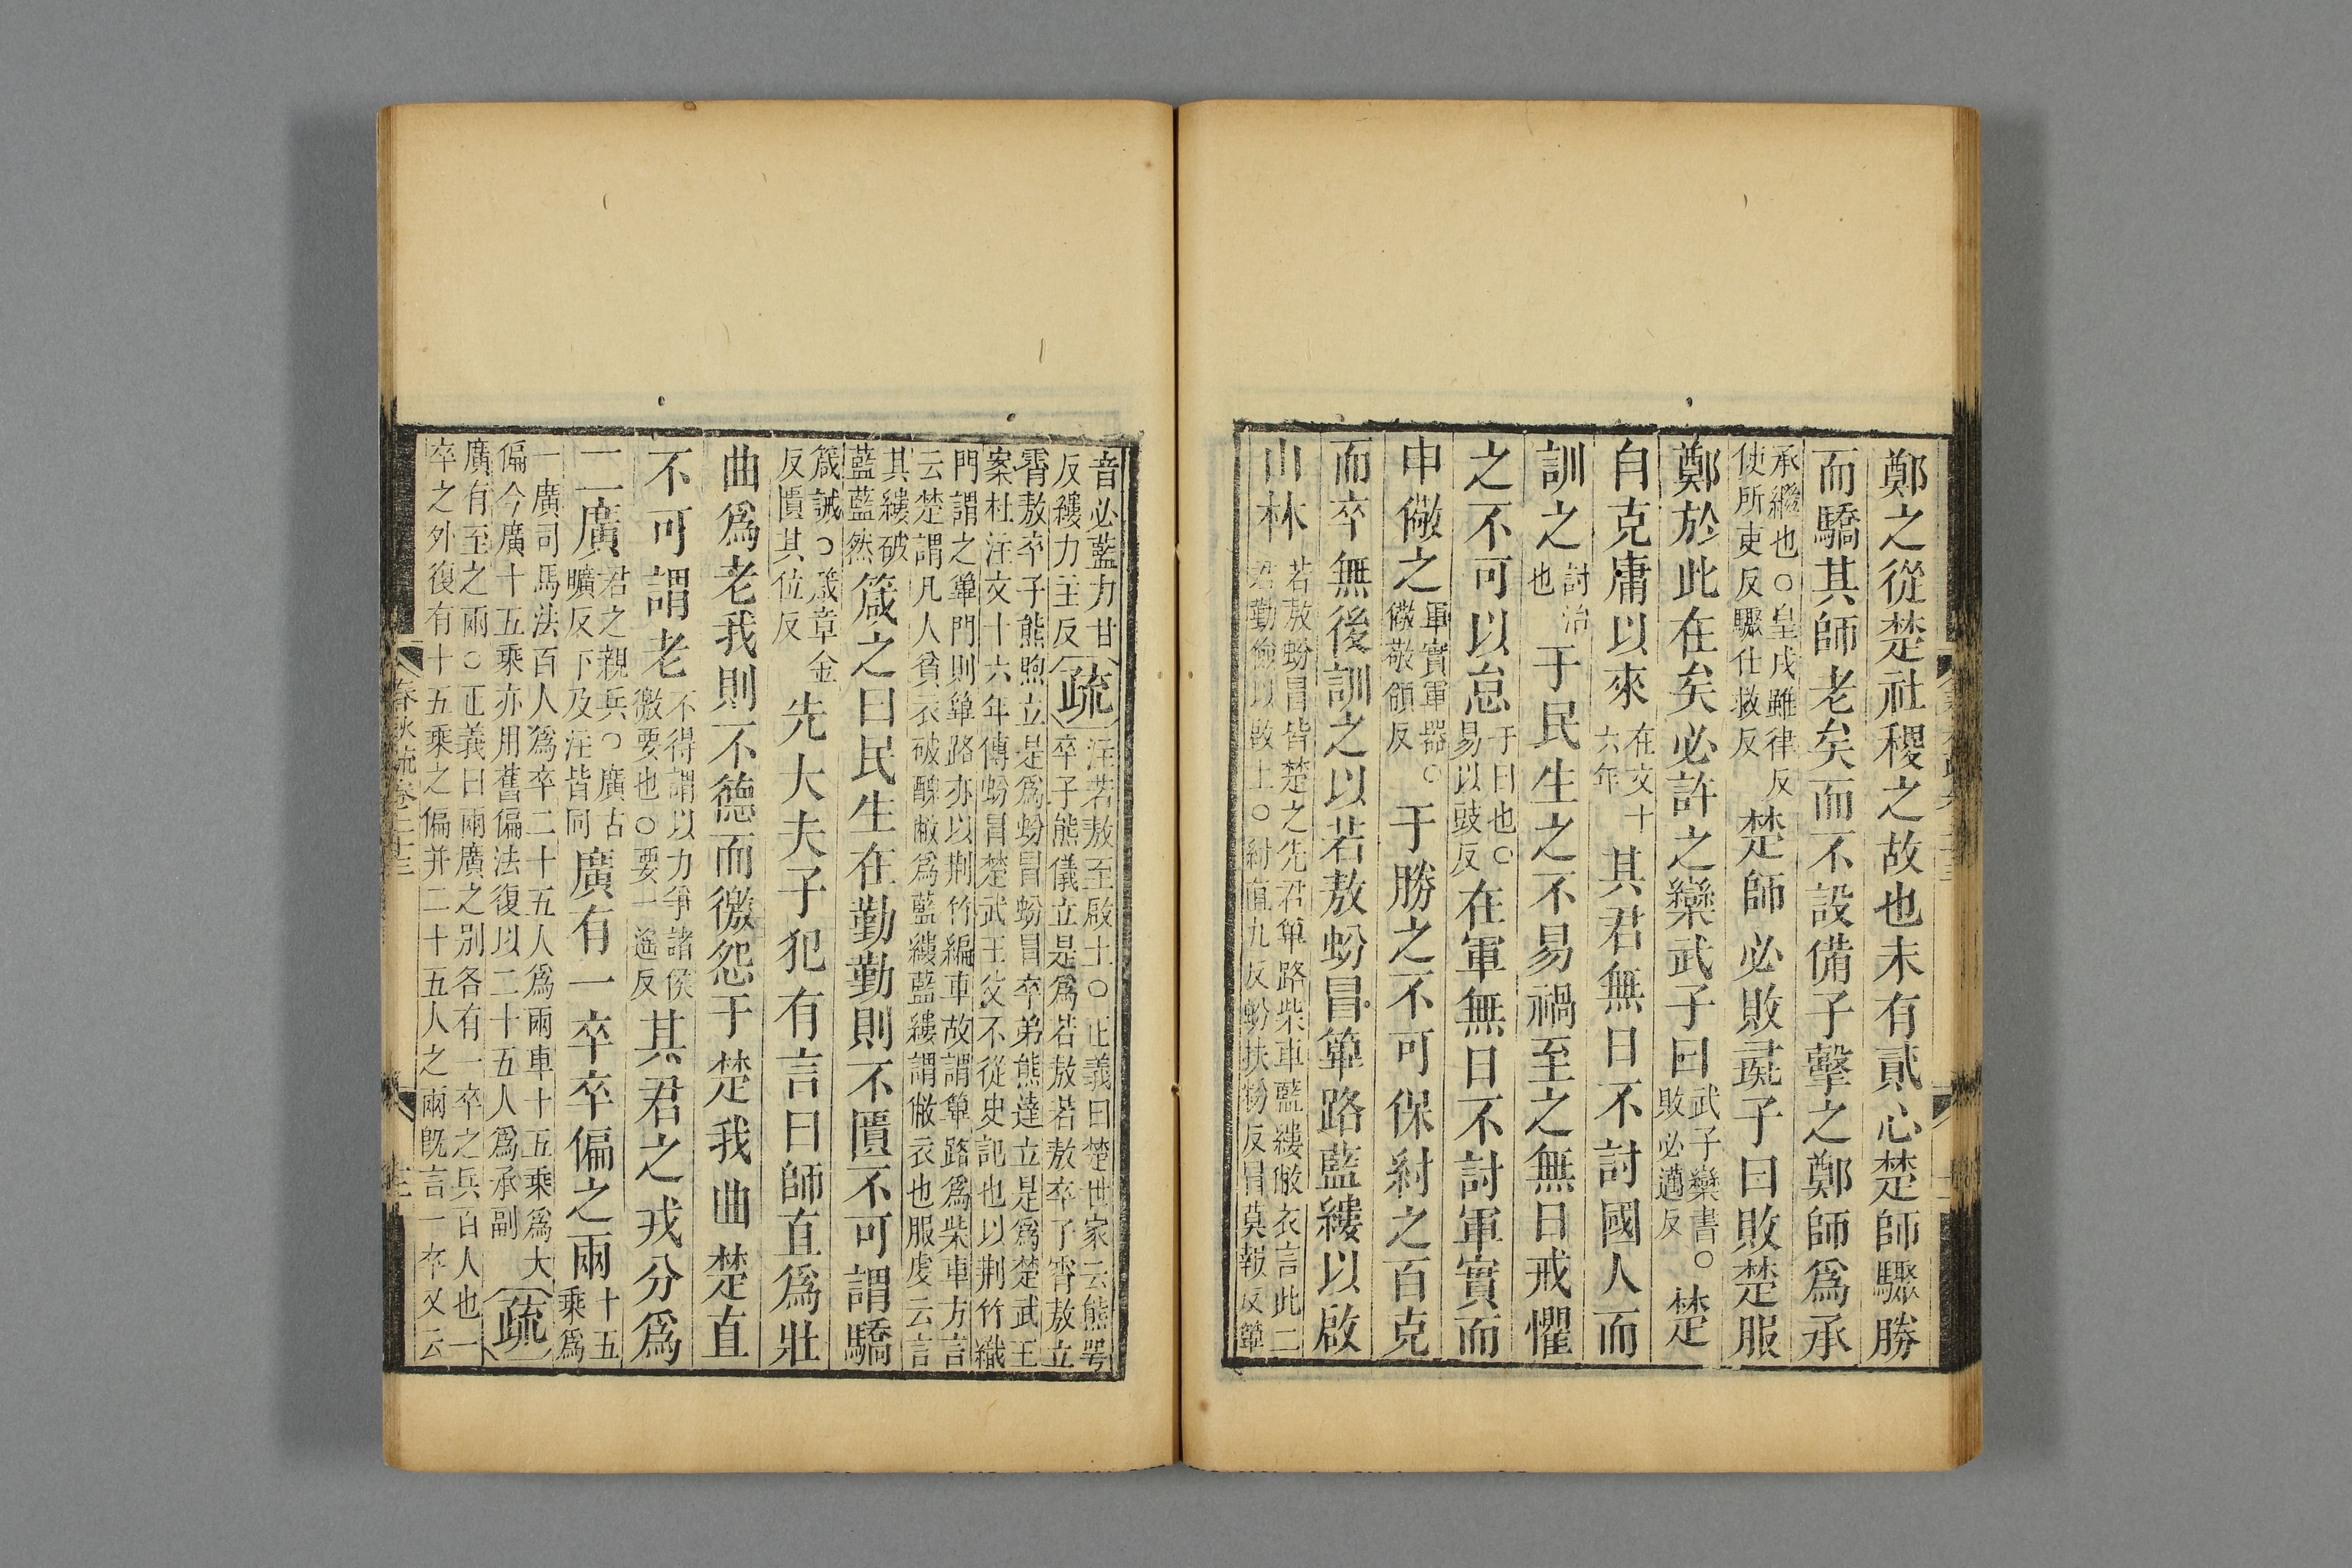 鄭之從楚社稷之故也未有貳心楚師驟勝
而驕其師老矣而不設備子擊之鄭師爲承
承繼也○皇戌雖律反
使所吏反驟仕救反
楚師必敗彘子曰敗楚服
鄭於此在矣必許之欒武子曰
武子欒書○
敗必邁反
楚
自克庸以來
在文十
六年
其君無日不討國人而
訓之
討治
也
于民生之不易禍至之無日戒懼
之不可以怠
于曰也○
易以豉反
在軍無日不討軍實而
申儆之
軍實軍器○
儆敬領反
于勝之不可保紂之百克
而卒無後訓之以若敖蚡冒篳路藍縷以啟
山林
若敖蚡冒皆楚之先君篳路柴車藍縷敝衣言此二
君勤儉以啟土○紂直九反蚡扶粉反冒莫報反篳
音必藍力甘
反縷力主反
疏
注若敖至啟土○正義曰楚世家云熊咢
卒子熊儀立是爲若敖若敖卒子霄敖立
霄敖卒子熊煦立是爲蚡冒蚡冒卒弟熊達立是爲楚武王
案杜注文十六年傳蚡冒楚武王父不從史記也以荆竹織
門謂之篳門則篳路亦以荆竹編車故謂篳路爲柴車方言
云楚謂凡人貧衣破醜敝爲藍縷藍縷謂敝衣也服虔云言
其縷破
藍藍然
箴之曰民生在勤勤則不匱不可謂驕
箴誡○箴章金
反匱其位反
先大夫子犯有言曰師直爲壯
曲爲老我則不德而徼怨于楚我曲楚直
不可謂老
不得謂以力爭諸侯
徼要也○要一遥反
其君之戎分爲
二廣
君之親兵○廣古
曠反下及注皆同
廣有一卒卒偏之兩
十五
乘爲
一廣司馬法百人爲卒二十五人爲兩車十五乘爲大
偏今廣十五乘亦用舊偏法復以二十五人爲承副
疏
廣有至之兩○正義曰兩廣之别各有一卒之兵百人也一
卒之外復有十五乘之偏并二十五人之兩旣言一卒又云
春秋疏卷二十三